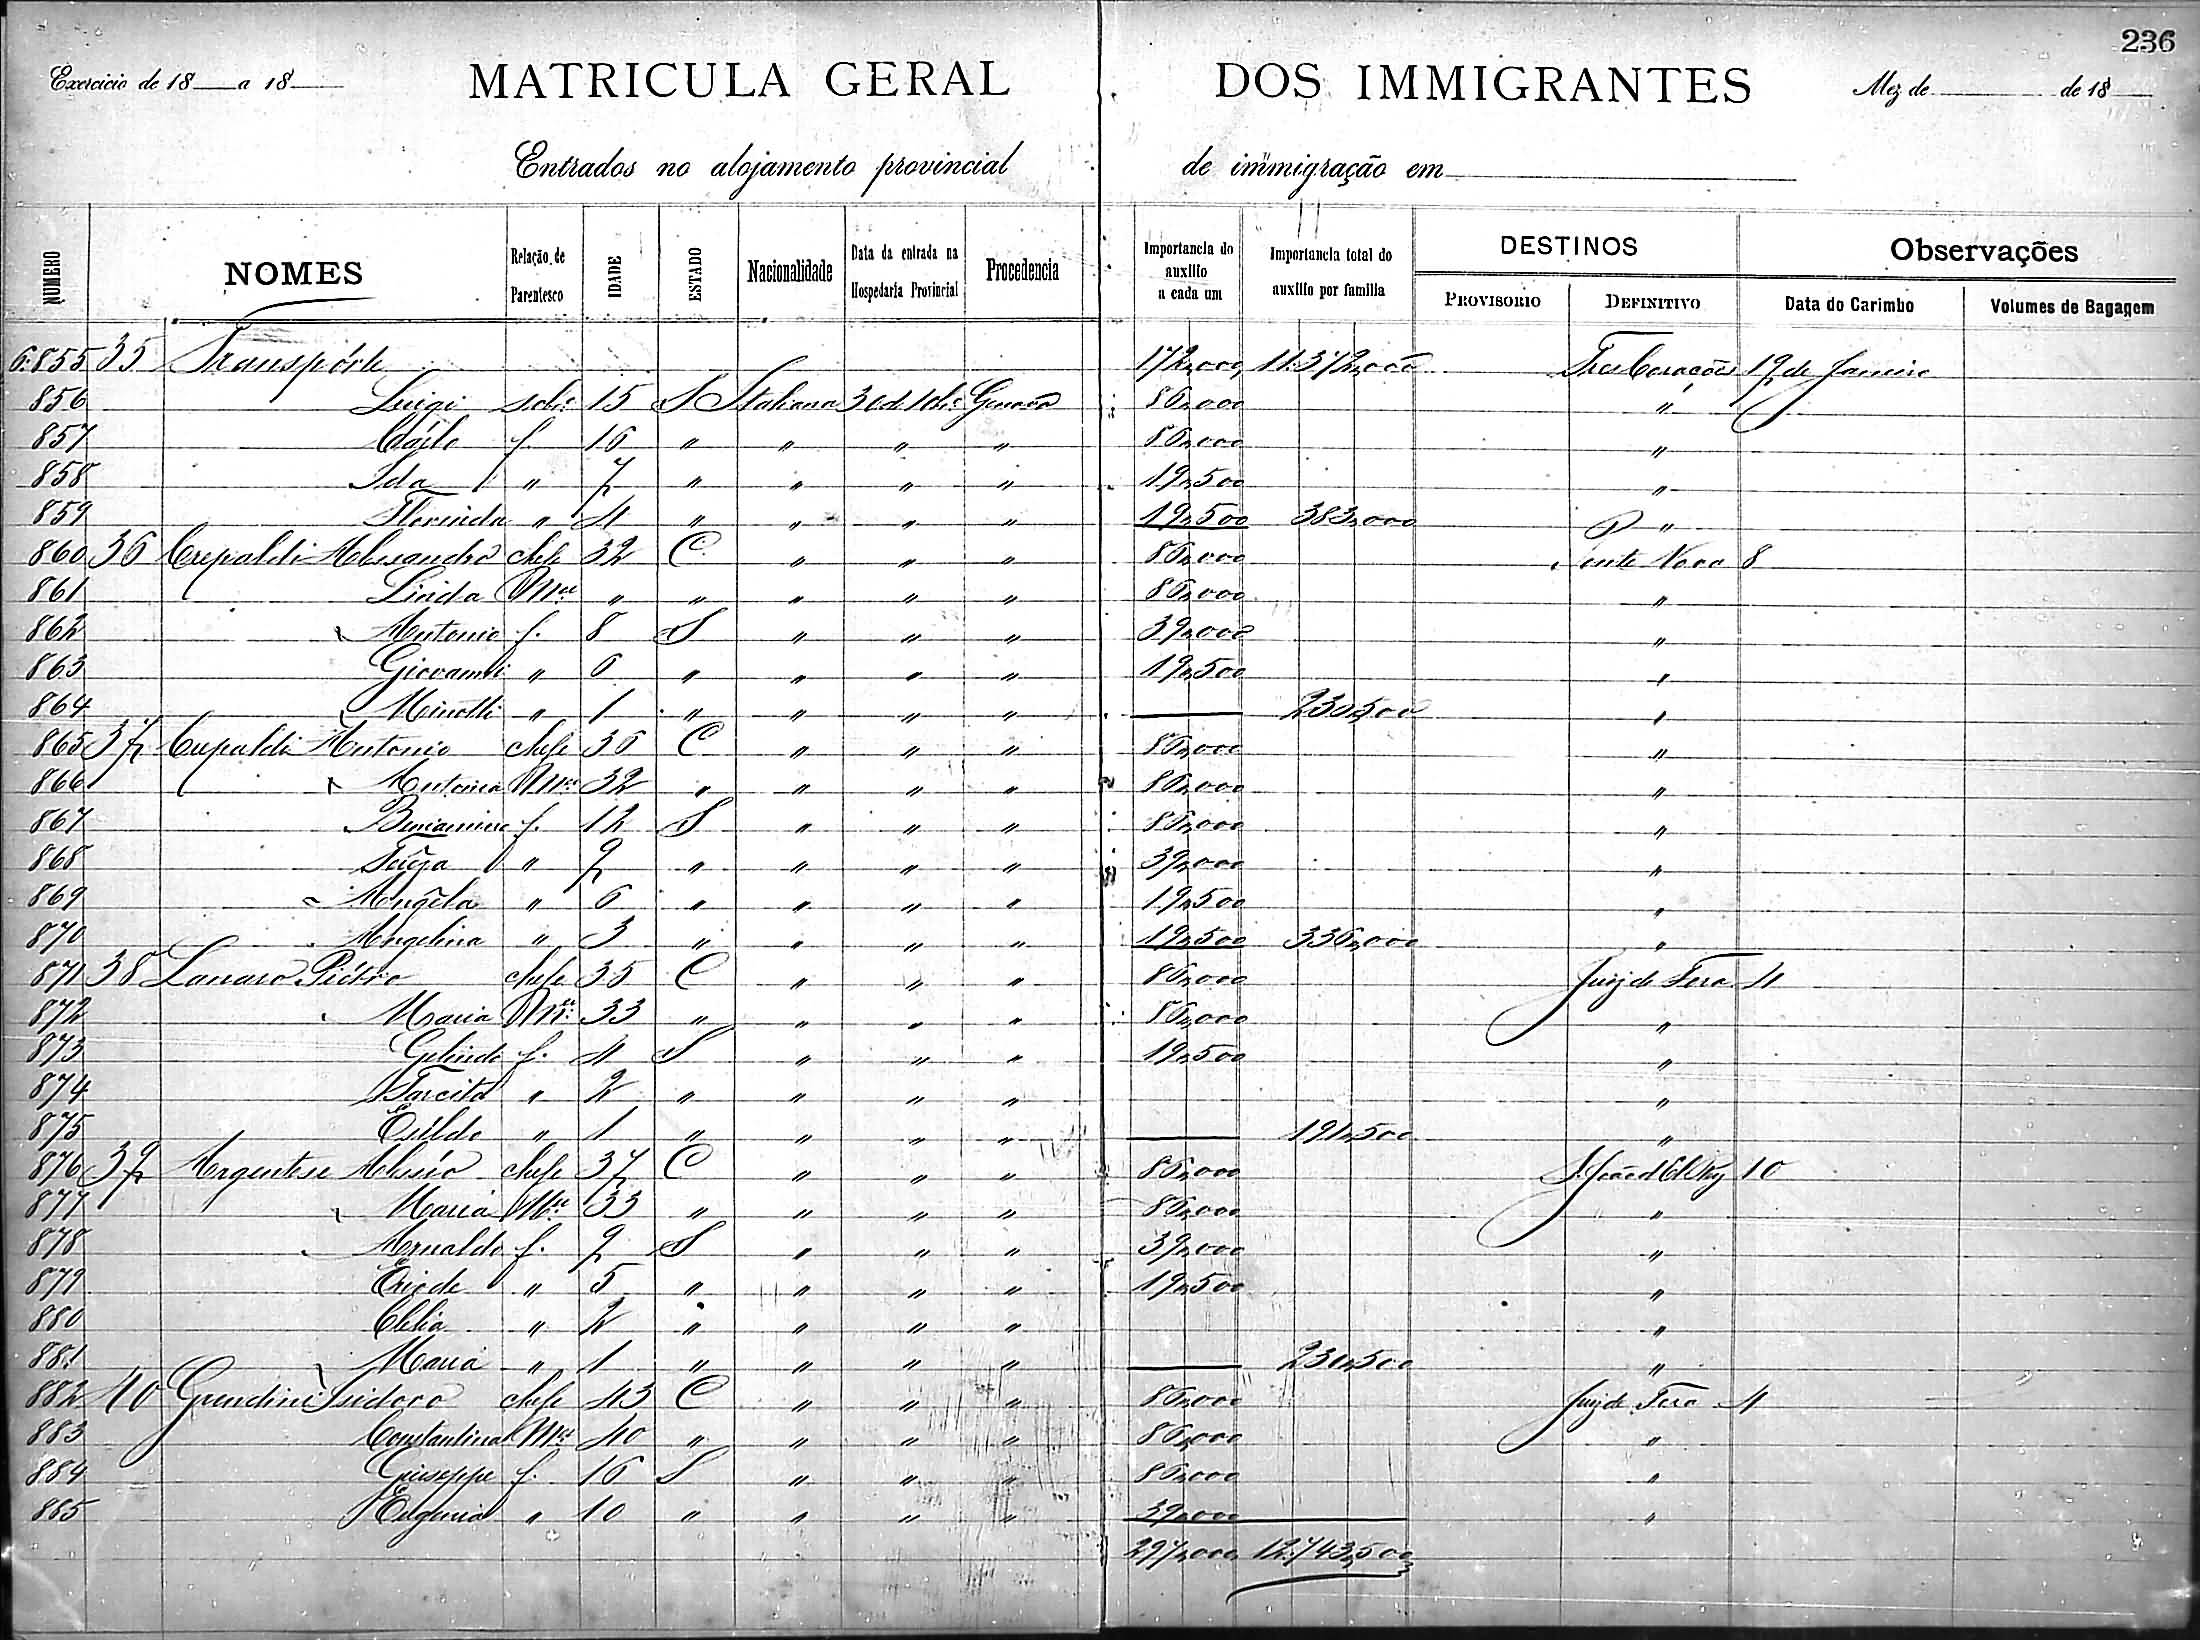 236
Exercicio de 18 a 18 MATRICULA GERAL DOS IMMIGRANTES Mez de de 18
Entrados no alojamento provincial de immigração em
NUMERO NOMES Relação de Parentesco IDADE ESTADO Nacionalidade Data da entrada na Hospedaria Provincial Procedencia Importancia do auxilio a cada um Importancia total do auxilio por familia DESTINOS PROVISORIO DEFINITIVO Observações Data do Carimbo Volumes de Bagagem
6.855 35 Transporte 172,000 11:372,000 Tres Corações 19 de Janeiro
856 Luigi 15 S Italiana Genova 86,000 "
857 Carlo f. 16 " " " " 86,000 "
858 Ida " 7 " " " " 19,500 "
859 Florinda " 4 " " " " 19,500 383,000 "
860 36 Crepaldi Alessandro chefe 32 C " " " 86,000 Ponte Nova 8
861 Linda Mer " " " " " 86,000 "
862 Antonio f. 8 S " " " 39,000 "
863 Giovanni " 6 " " " " 19,500 "
864 " 1 " " " " — 230,500 "
865 37 Crepaldi Antonio chefe 36 C " " " 86,000 "
866 Antonia Mer 32 " " " " 86,000 "
867 Beniamino f. 12 S " " " 86,000 "
868 " 9 " " " " 39,000 "
869 Angela " 6 " " " " 19,500 "
870 Angelina " 3 " " " " 19,500 336,000 "
871 38 Lanaro Pietro chefe 35 C " " " 86,000 Juiz de Fora 4
872 Maria Mer 33 " " " " 86,000 "
873 Gelindo f. 4 S " " " 19,500 "
874 Tarcita " 2 " " " " "
875 Esildo " 1 " " " " — 191,500 "
876 39 Argentese Alessio chefe 37 C " " " 86,000 S. João d'El Rey 10
877 Maria Mer 33 " " " " 86,000 "
878 Arnaldo f. 9 S " " " 39,000 "
879 " 5 " " " " 19,500 "
880 Clelia " 2 " " " " "
881 Maria " 1 " " " " — 230,500 "
882 40 Grendini Isidoro chefe 43 C " " " 86,000 Juiz de Fora 4
883 Constantina Mer 40 " " " " 86,000 "
884 Giuseppe f. 16 S " " " 86,000 "
885 Eugenia " 10 " " " " 39,000 "
297,000 12:743,500